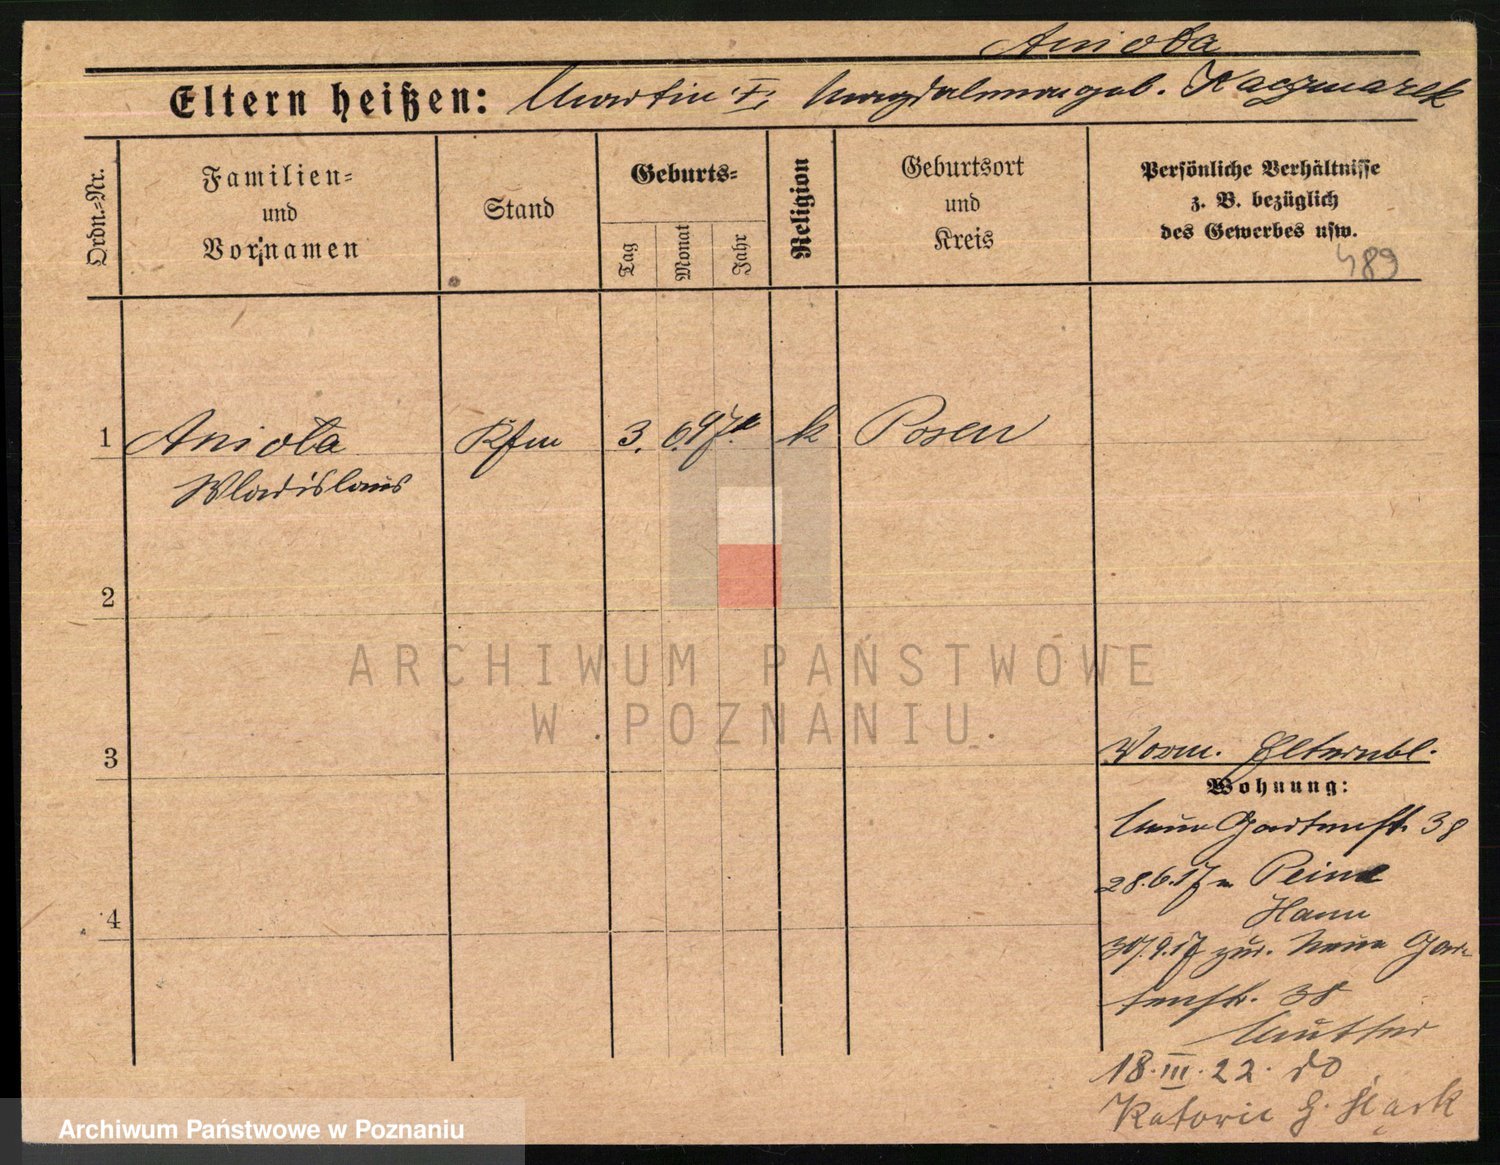 Anioła
Eltern heißen: Martin †, Magdalena geb. Kaczmarek
Ordn.-Nr.
Familien-
und
Vornamen
Stand
Geburts-
Tag
Monat
Jahr
Religion
Geburtsort
und
Kreis
Persönliche Verhältnisse
z. B. bezüglich
des Gewerbes usw.
489
1 Anioła Kfm 3. 6. 97. k Posen
Wladislaus
2
ARCHIWUM PAŃSTWOWE
W POZNANIU
3
Vorm. Elternbl.
Wohnung:
Neue Gartenstr. 38
28.6.17 n Peine
Hann
30/9.17 zur. Neue Gar-
4
tenstr. 38
Mutter
18.III.22. do
Katowic G. Śląsk
Archiwum Państwowe w Poznaniu